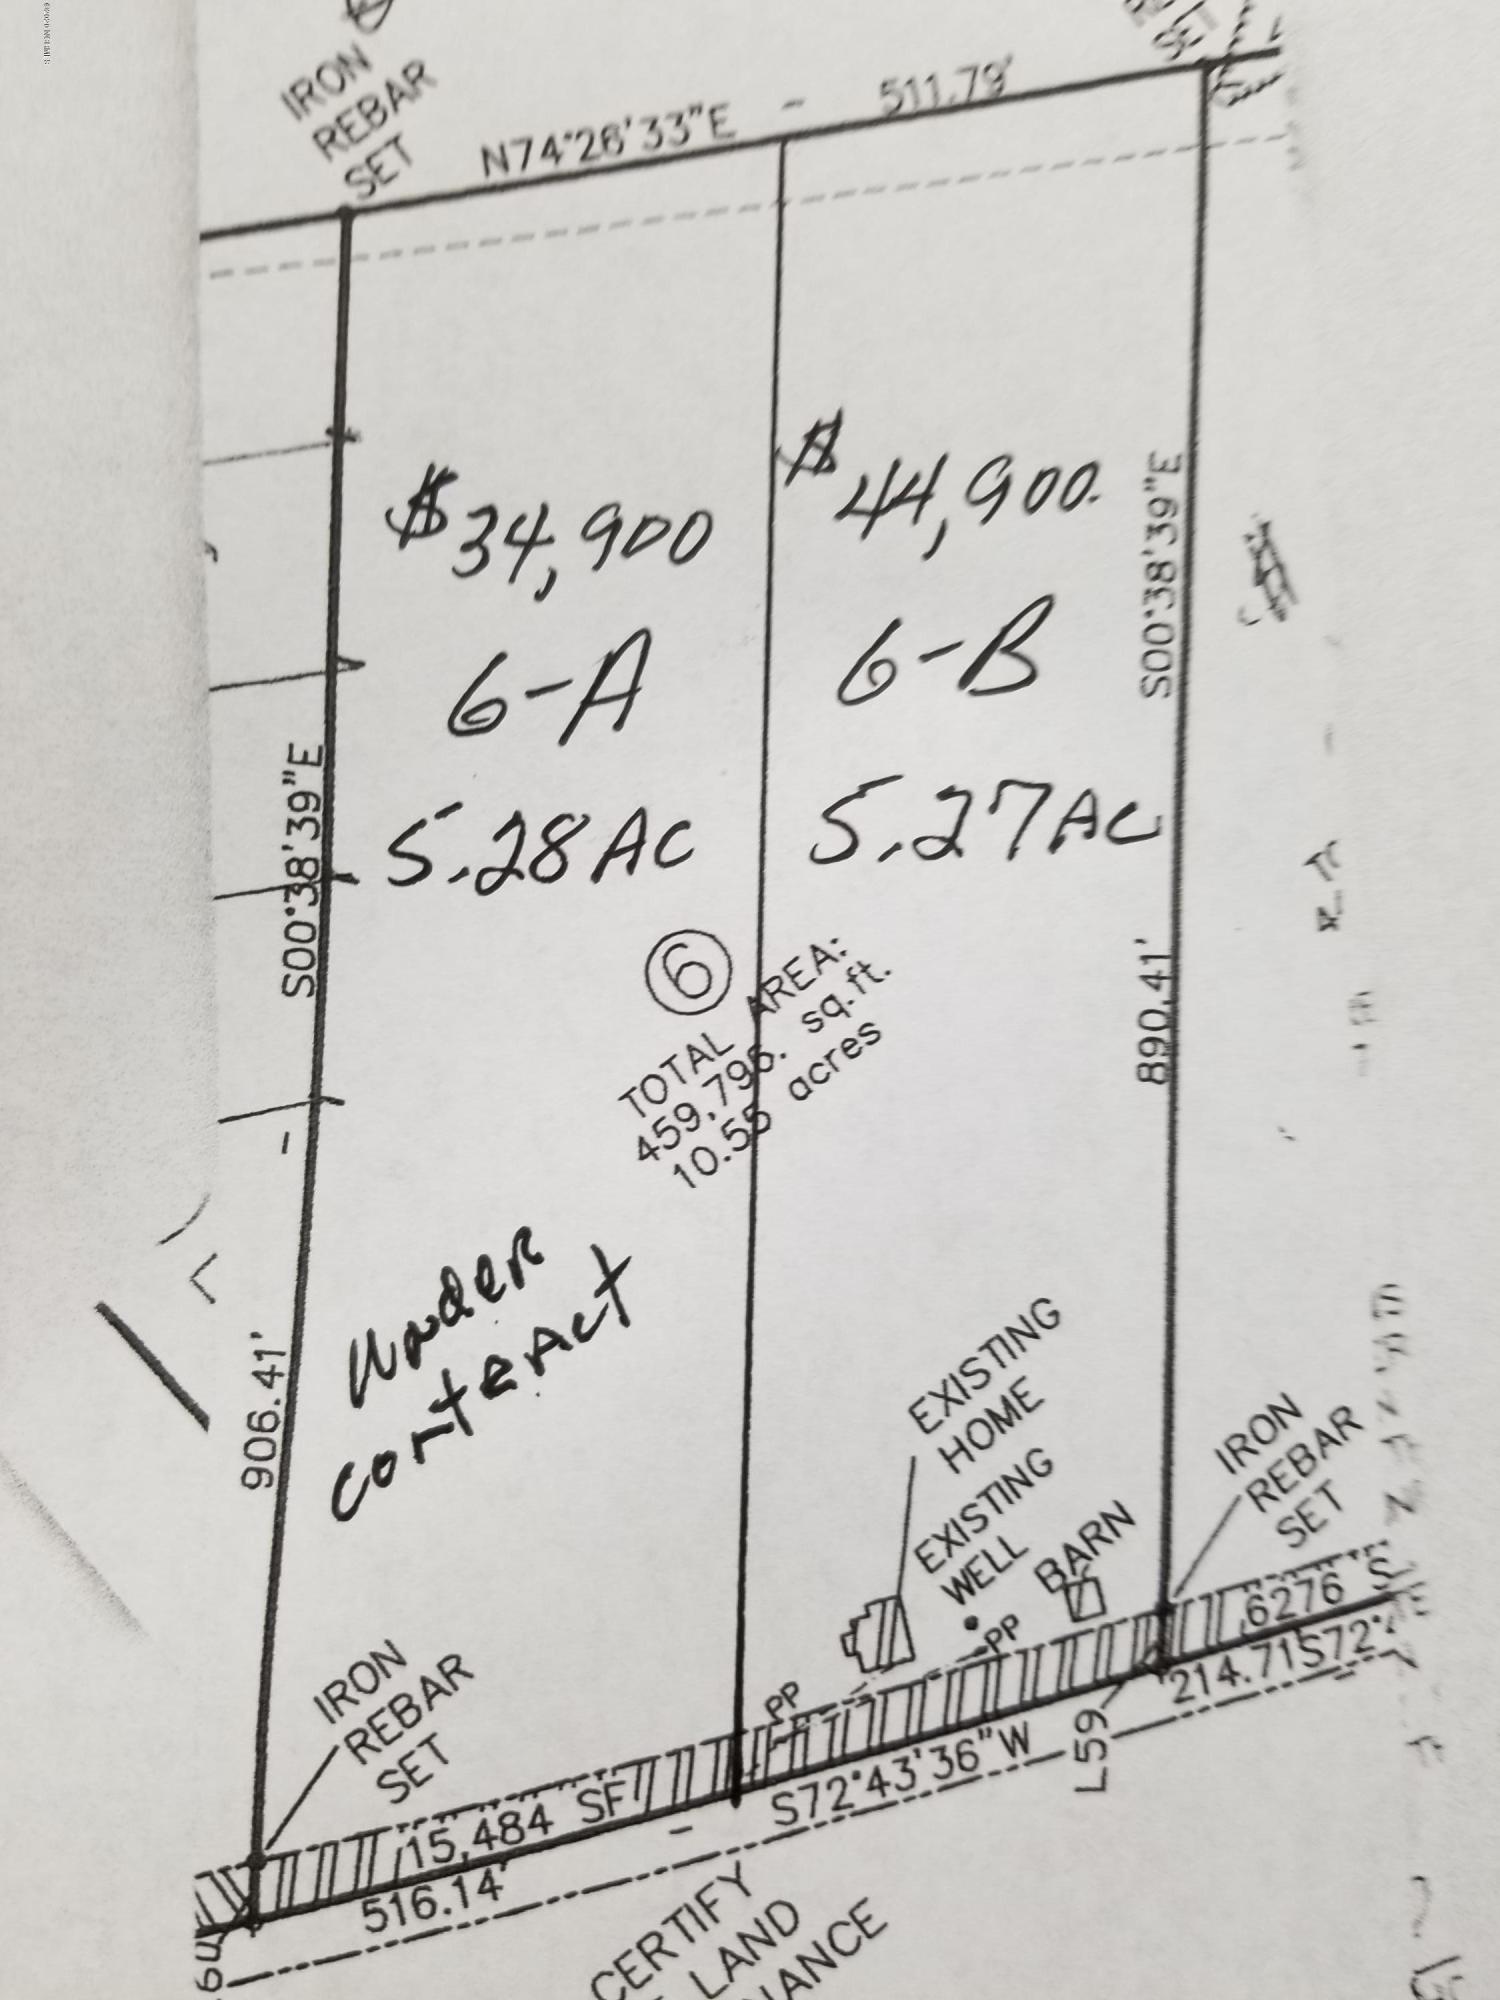 IRON
REBAR
SET
SET
N74°26'33"E - 511.79'
$34,900
6-A
5.28 AC
$44,900.
6-B
5.27 AC
S00°38'39"E
S00°38'39"E
-
906.41'
890.41'
6
TOTAL AREA:
459,796. sq.ft.
10.55 acres
Under
contract
EXISTING
HOME
EXISTING
WELL
BARN
IRON
REBAR
SET
IRON
REBAR
SET
PP
PP
15,484 SF
6276 S
516.14' - S72°43'36"W
L59
214.71
S72°
CERTIFY
LAND